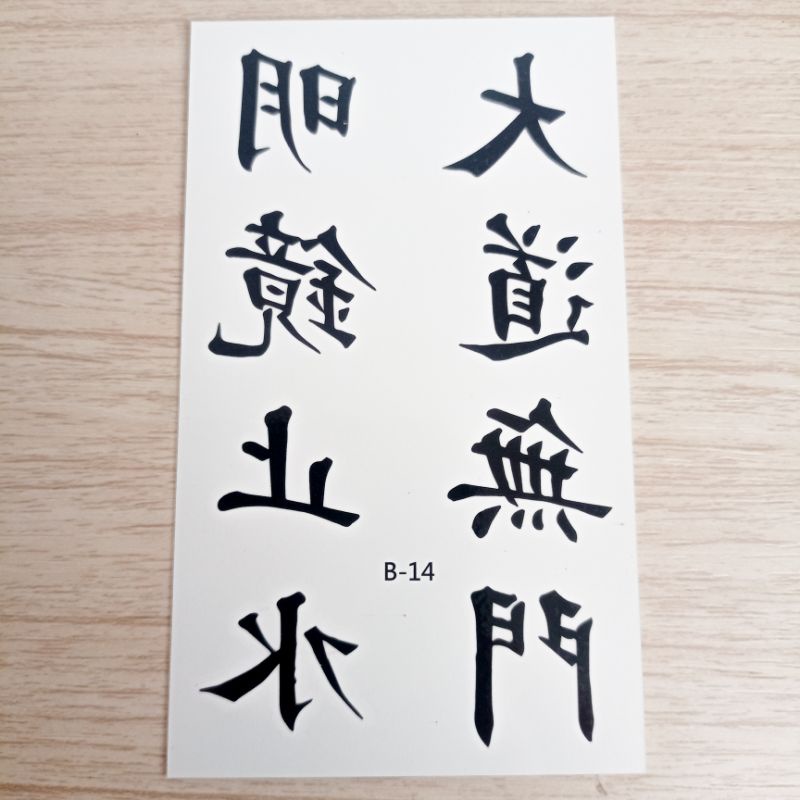 明鏡止水
大道無門
B-14